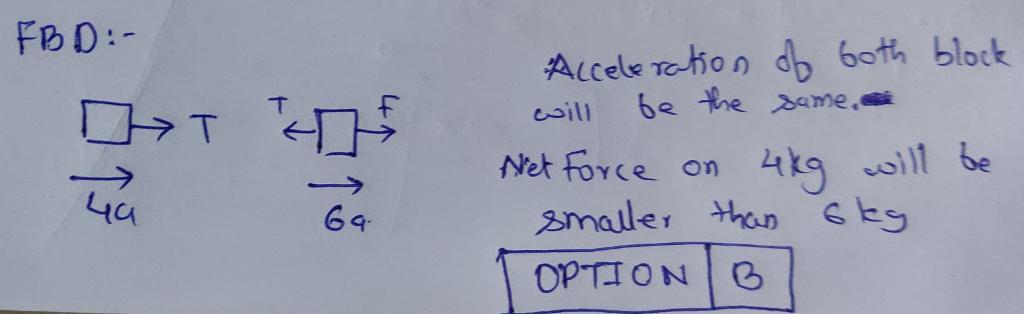 FBD:-
T T F
4a 6a.
Acceleration of both block
will be the same.
Net force on 4kg will be
smaller than 6kg
OPTION B